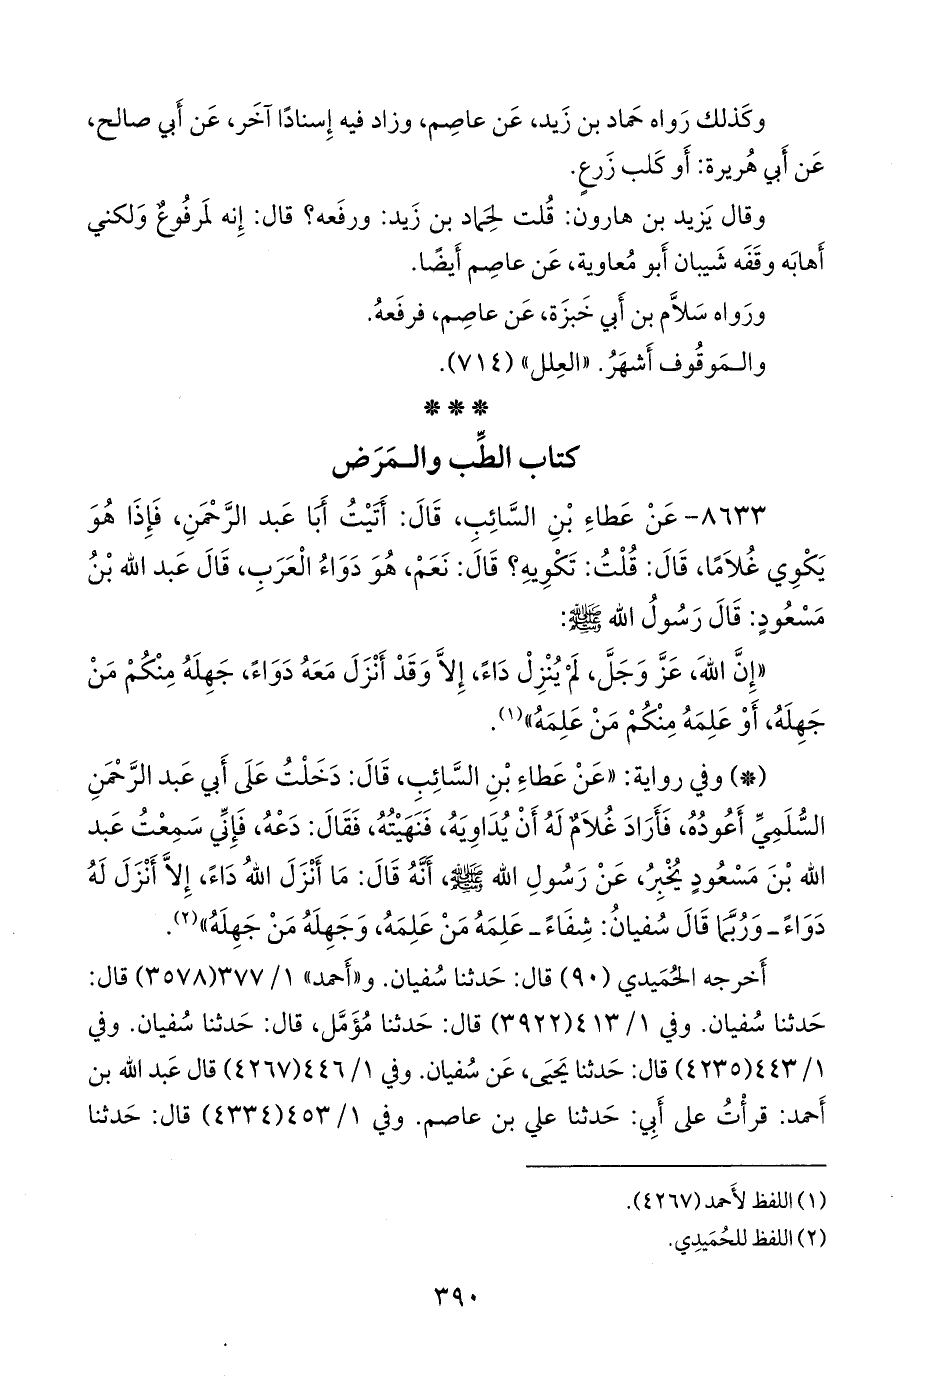 وكَذلك رَواه حَماد بن زَيد، عَن عاصِم، وزاد فيه إِسنادًا آخَر، عَن أَبي صالح،
عَن أَبي هُريرة: أَو كَلب زَرعٍ.
وقال يَزيد بن هارون: قُلت لِحَماد بن زَيد: ورفَعه؟ قال: إِنه لَمرفُوعٌ وَلكني
أَهابَه وقَفَه شَيبان أَبو مُعاوية، عَن عاصِم أَيضًا.
ورَواه سَلاَّم بن أَبي خَبزَة، عَن عاصِم، فرفَعهُ.
والـمَوقُوف أَشهَرُ. «العِلل» (٧١٤).
* * *
كتاب الطِّب والـمَرَض
٨٦٣٣- عَنْ عَطاءِ بْنِ السَّائِبِ، قَالَ: أَتَيْتُ أَبَا عَبد الرَّحْمَنِ، فَإِذَا هُوَ
يَكْوِي غُلاَمًا، قَالَ: قُلْتُ: تَكْوِيهِ؟ قَالَ: نَعَمْ، هُوَ دَوَاءُ الْعَرَبِ، قَالَ عَبد الله بْنُ
مَسْعُودٍ: قَالَ رَسُولُ الله ﷺ:
«إِنَّ اللهَ، عَزَّ وَجَلَّ، لَمْ يُنْزِلْ دَاءً، إِلاَّ وَقَدْ أَنْزَلَ مَعَهُ دَوَاءً، جَهِلَهُ مِنْكُمْ مَنْ
جَهِلَهُ، أَوْ عَلِمَهُ مِنْكُمْ مَنْ عَلِمَهُ»(١).
(*) وفي رواية: «عَنْ عَطاءِ بْنِ السَّائِبِ، قَالَ: دَخَلْتُ عَلَى أَبي عَبد الرَّحْمَنِ
السُّلَمِيِّ أَعُودُهُ، فَأَرَادَ غُلاَمٌ لَهُ أَنْ يُدَاوِيَهُ، فَنَهَيْتُهُ، فَقَالَ: دَعْهُ، فَإِنِّي سَمِعْتُ عَبد
الله بْنَ مَسْعُودٍ يُخْبِرُ، عَنْ رَسُولِ الله ﷺ، أَنَّهُ قَالَ: مَا أَنْزَلَ اللهُ دَاءً، إِلاَّ أَنْزَلَ لَهُ
دَوَاءً ـ وَرُبَّمَا قَالَ سُفيانُ: شِفَاءً ـ عَلِمَهُ مَنْ عَلِمَهُ، وَجَهِلَهُ مَنْ جَهِلَهُ»(٢).
أَخرجه الحُمَيدي (٩٠) قال: حَدثنا سُفيان. و«أَحمد» ١/ ٣٧٧(٣٥٧٨) قال:
حَدثنا سُفيان. وفي ١/ ٤١٣(٣٩٢٢) قال: حَدثنا مُؤَمَّل، قال: حَدثنا سُفيان. وفي
١/ ٤٤٣(٤٢٣٥) قال: حَدثنا يَحيَى، عَن سُفيان. وفي ١/ ٤٤٦(٤٢٦٧) قال عَبد الله بن
أَحمد: قرأْتُ على أَبِي: حَدثنا علي بن عاصم. وفي ١/ ٤٥٣(٤٣٣٤) قال: حَدثنا
(١) اللفظ لأَحمد (٤٢٦٧).
(٢) اللفظ للحُمَيدِي.
٣٩٠